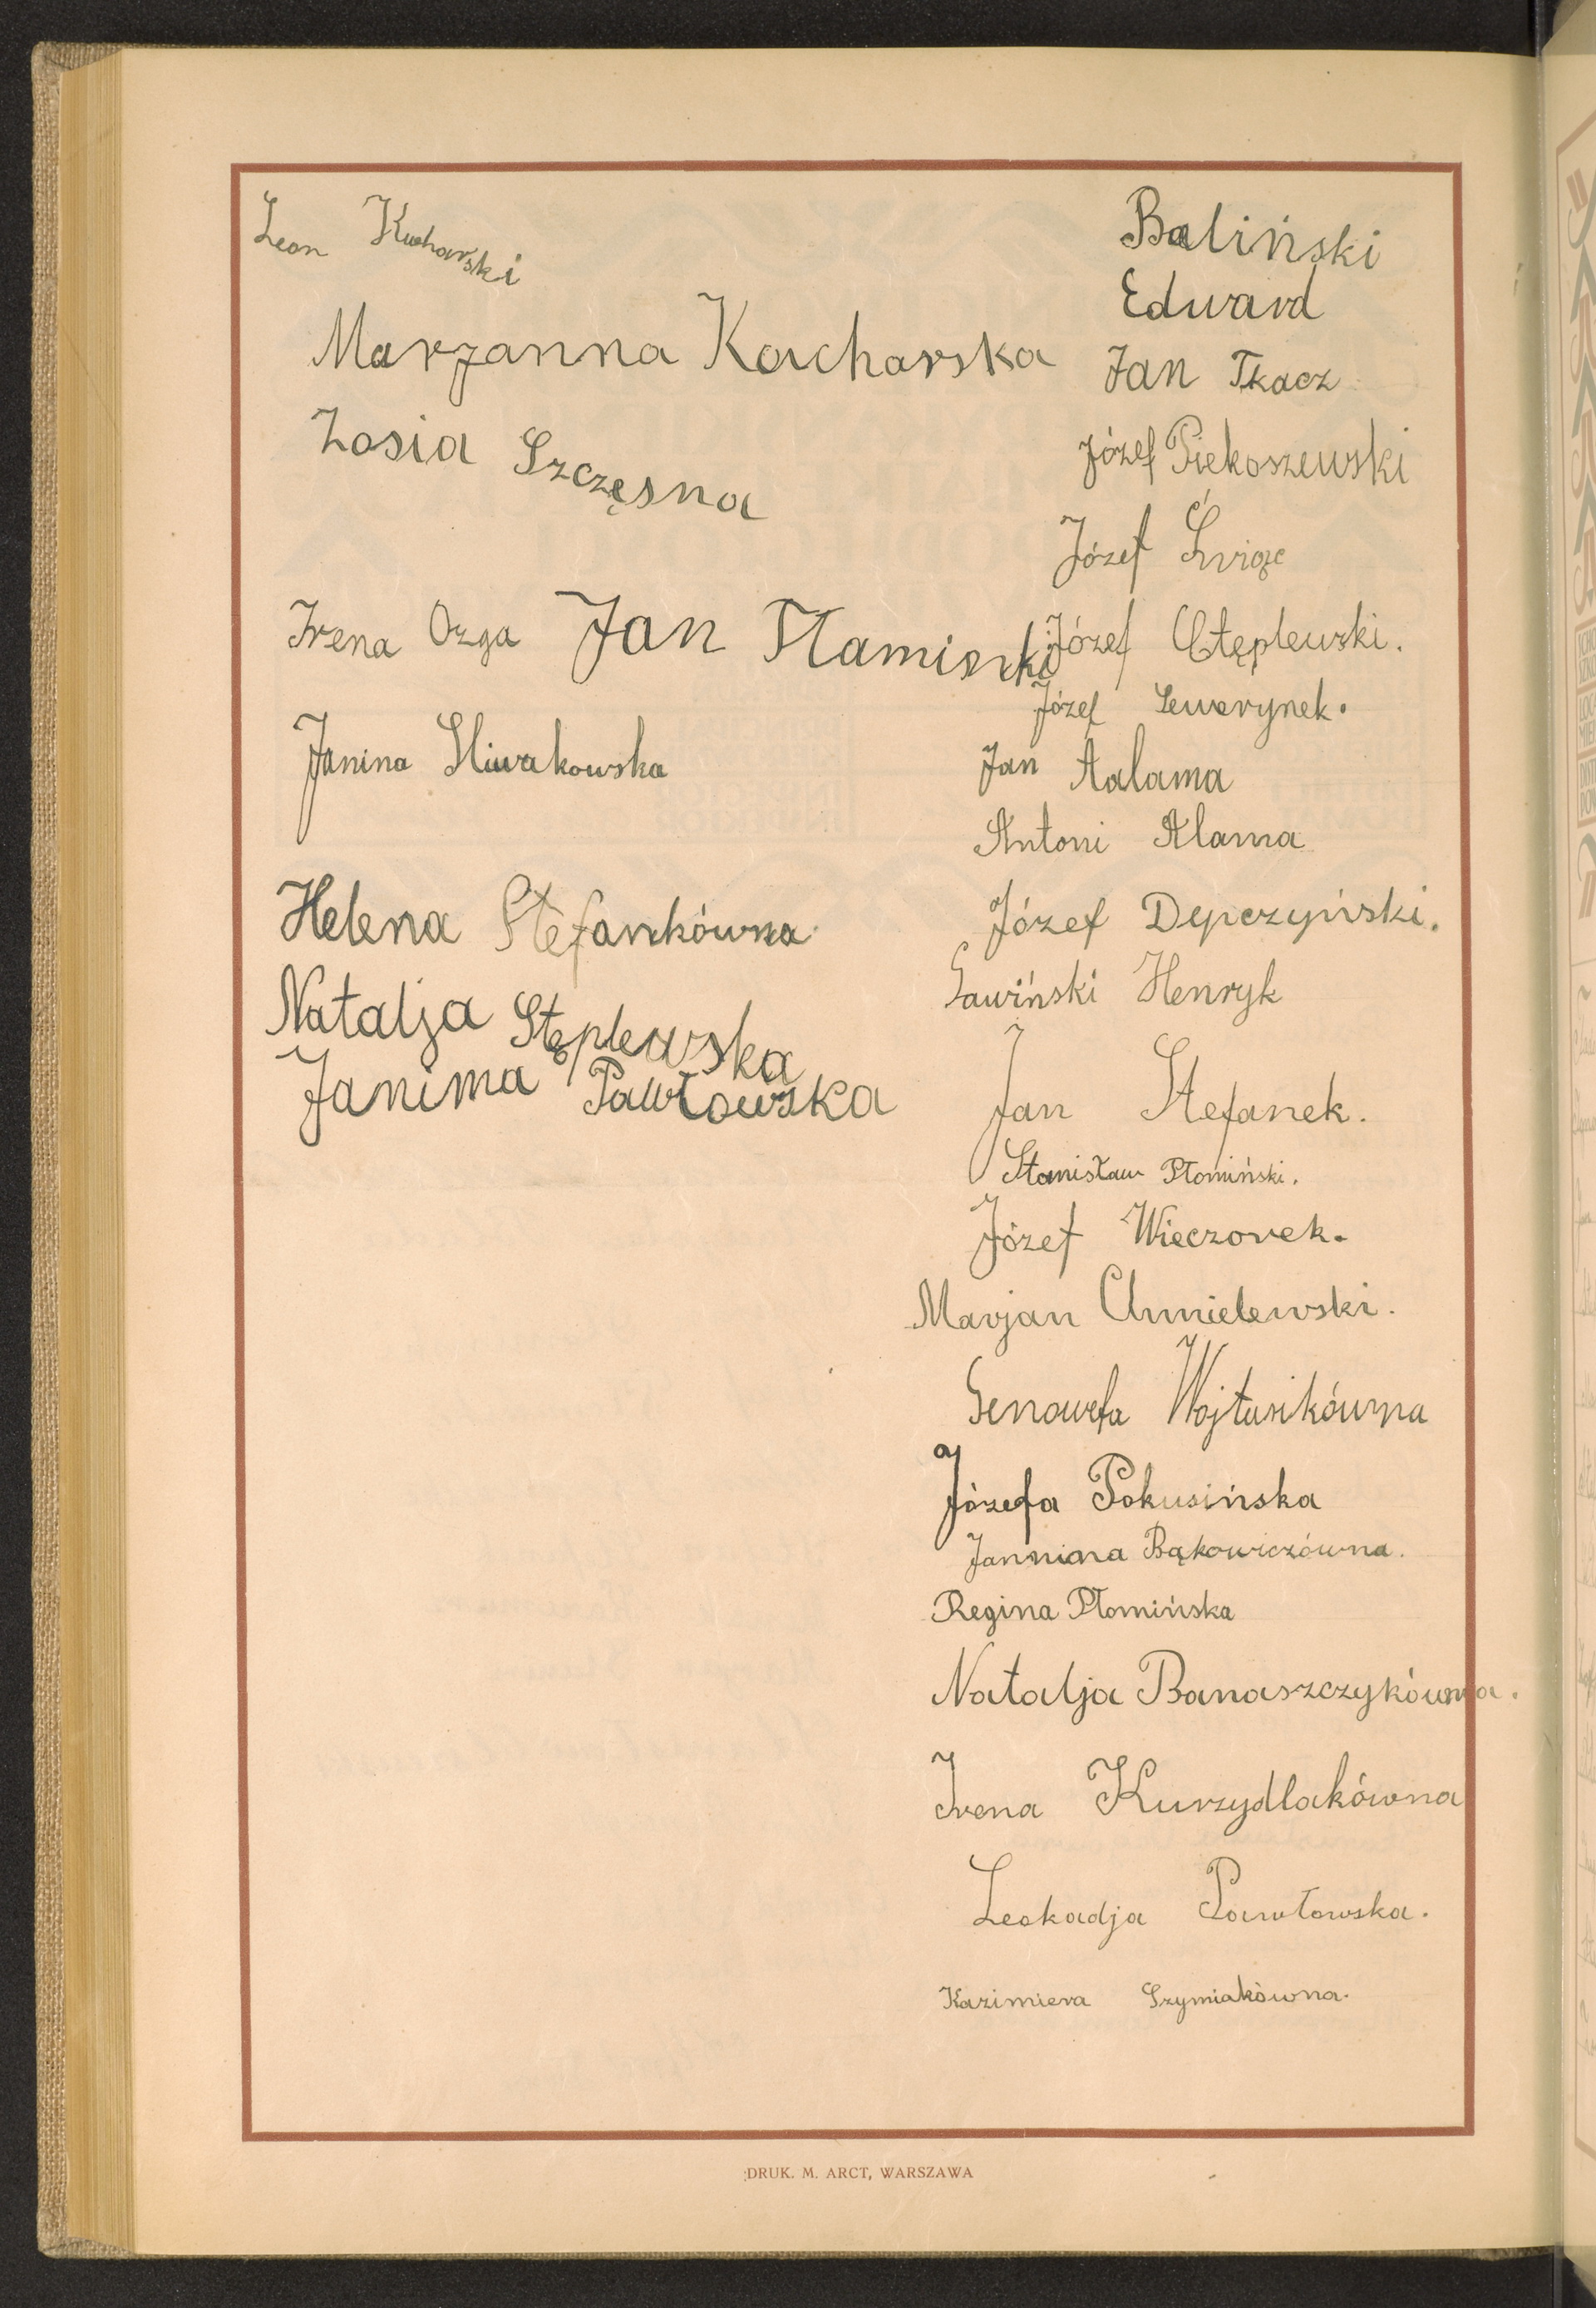 Leon Kucharski
Marzanna Kacharska
Zosia Szczęsna
Irena Ozga
Jan Płamiski
Janina Sliwakowska
Helena Stefankówna
Natalja Stęplewska
Janima Pawłowska
Baliński
Edward
Jan Tkacz
Józef Piekoszewski
Józef
Józef Stęplewski.
Józef Sewerynek.
Jan Aalama
Antoni Alama
Józef Depczyński.
Gawiński Henryk
Jan Stefanek.
Stanisław Płomiński.
Józef Wieczorek.
Marjan Chmielewski.
Genowefa Wojtusikówna
Józefa Pokusińska
Jannina Bąkowiczówna.
Regina Płomińska
Natalja Banaszczykówna.
Irena Kurzydlakówna
Leokadja Pawłowska.
Kazimiera Szymiakówna.
DRUK. M. ARCT, WARSZAWA